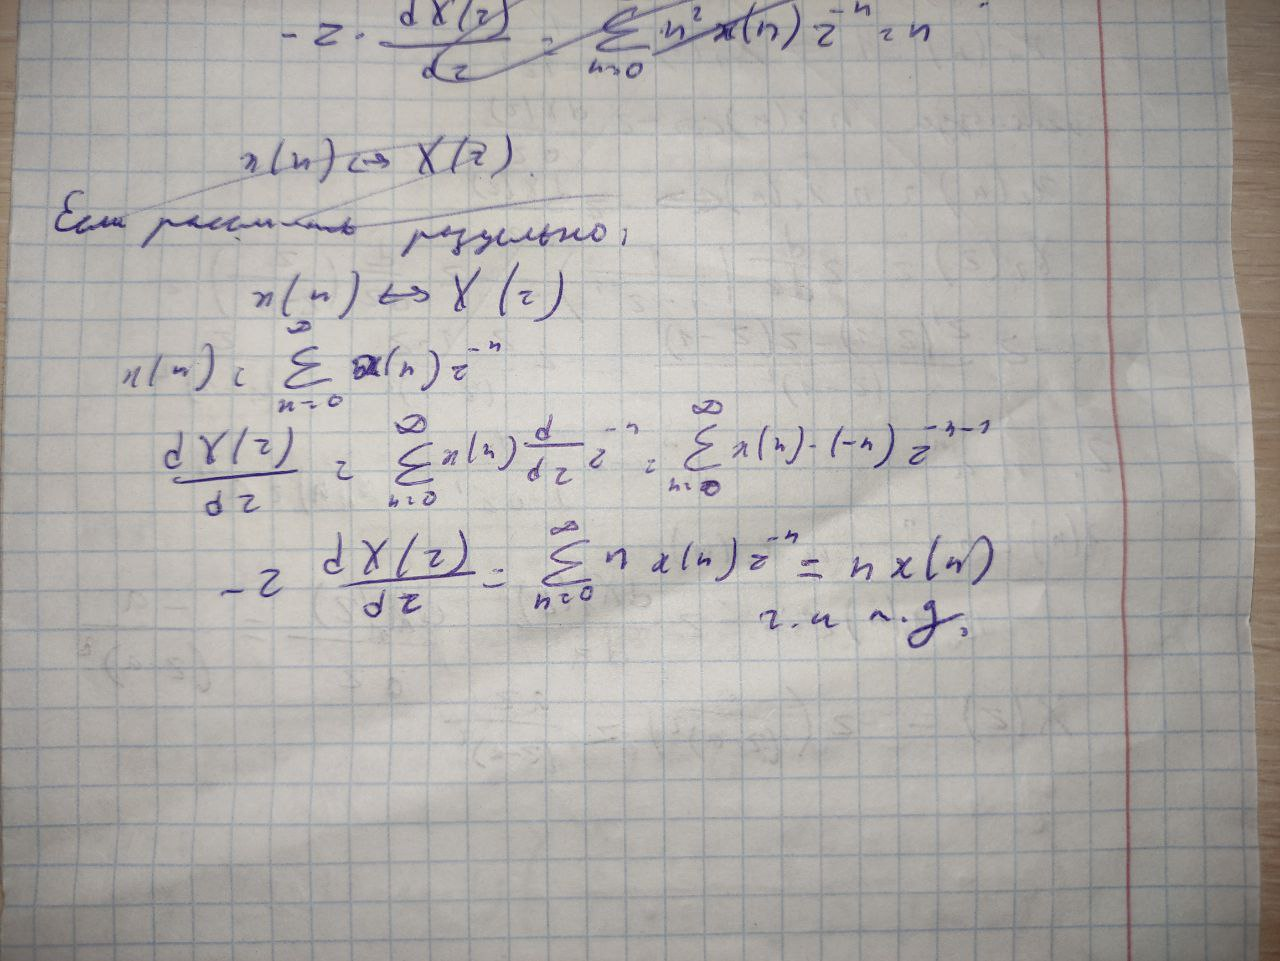 -z · dX(z)/dz = ∑_{n=0} n² x(n) z^{-n} = n
x(n) ↔ X(z)
Если раздельно:
x(n) ↔ X(z)
x(n) = ∑_{n=0}^{∞} x(n) z^{-n}
dX(z)/dz = ∑_{n=0}^{∞} x(n) d/dz z^{-n} = ∑_{n=0}^{∞} x(n)·(-n) z^{-n-1}
-z dX(z)/dz = ∑_{n=0}^{∞} n x(n) z^{-n} = n x(n)